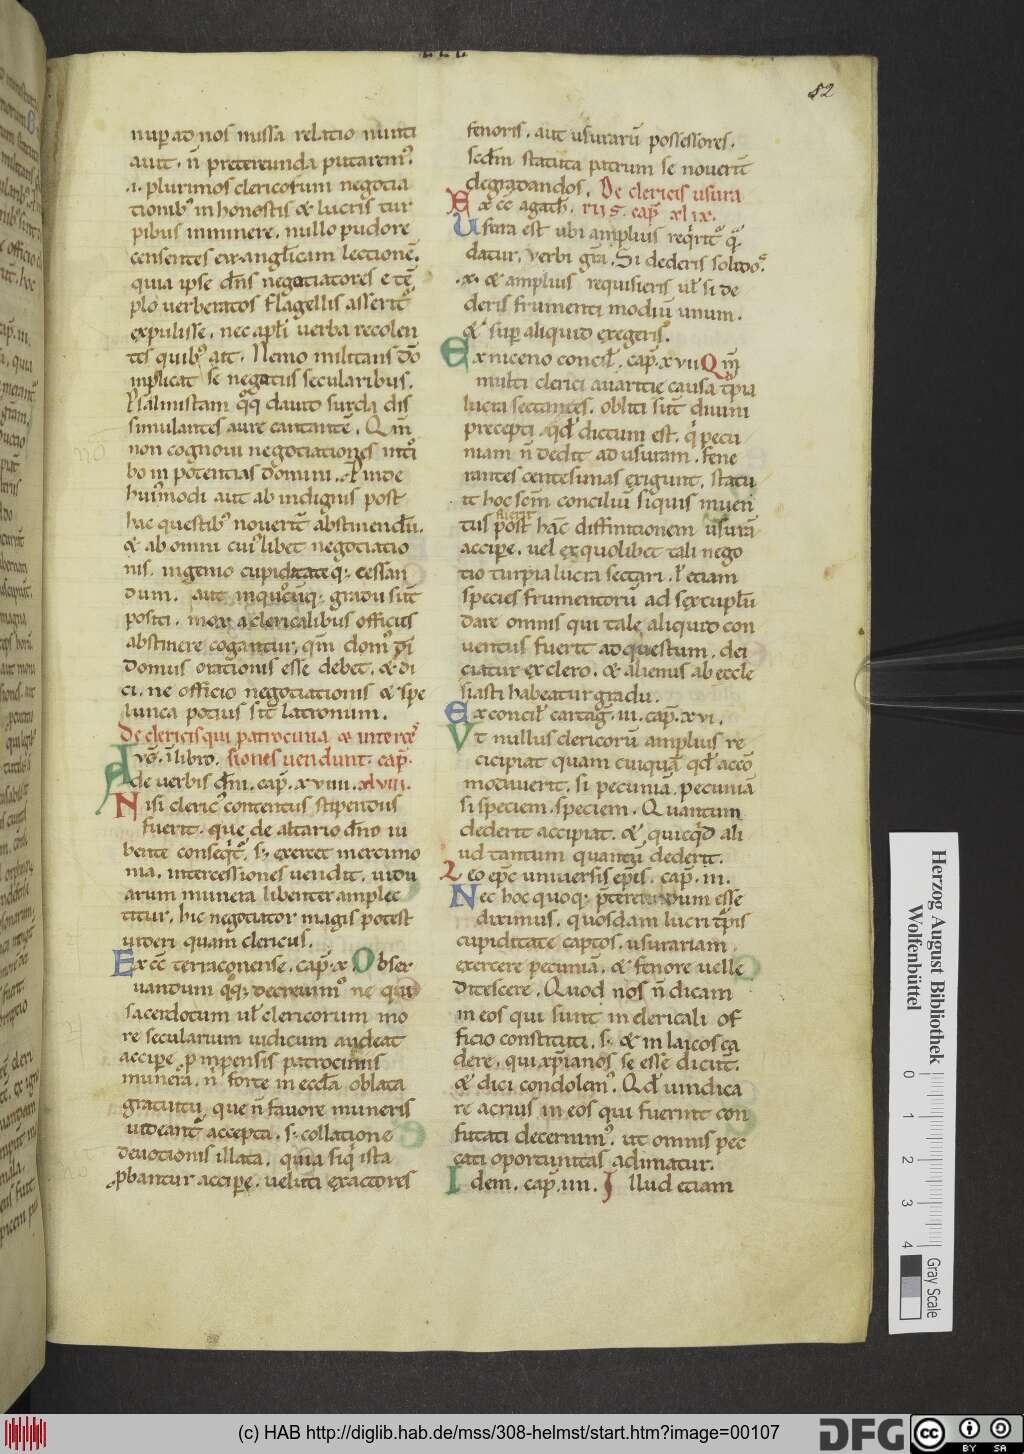 52
nup ad nos missa relatio nunti
auit. ñ pretereunda putarem᷒.
.i. plurimos clericorum negotia
tionib᷒ in honestis & lucris tur
pibus imminere. nullo pudore
censentes euangl̄icam lectionē.
quia ipse dn̄s negotiatores e tē
plo uerberatos flagellis asserit᷒
expulisse. nec apl̄i uerba recolen
tes quib᷒ ait. Nemo militans dō
inplicat se negatiis secularibus.
Psalmistam q̊q̊ dauid surda dis
simulantes aure cantantē. Qm̄
non cognoui negotiationes int̊i
bo in potentias domini. Proinde
hui᷒modi aut ab indignis post
hac questib᷒ nouerīt abstinendū.
& ab omni cui᷒libet negotiatio
nis. ingenio cupiditateq; cessan
dum. aut inquocūq; gradu sūt
positi. mox a clericalibus officiis
abstinere cogantur. qm̄ dom᷒ dī
domus orationis esse debet. & di
ci. ne officio negotiationis & spe
lunca potius sit latronum.
De clericis qui patrocinia & interces
Iuō. ī libro. siones uendunt. cap̄.
de uerbis dn̄i. cap̄. xviiii. xlviii.
Nisi cleric᷒ contentus stipendiis
fuerit. que de altario dn̄o iu
bente conseq̄t᷒. s; exercet mercimo
nia. intercessiones uendit. uidu
arum munera libenter amplec
titur. hic negotiator magis potest
uideri quam clericus.
Ex cc̄ terraconense. cap̄. x. Obser
uandum q̊q; decreuim᷒ ne quis
sacerdotum ul̄ clericorum mo
re secularium iudicum audeat
accipe p inpensis patrociniis
munera. n̄ forte in eccl̄a oblata
gratuitu que ñ fauore muneris
uideant᷒ accepta. s; collatione
deuotionis illata. quia si q̄ ista
pbantur accipe. ueluti exactores
fenoris. aut usurarū possessores.
scd̄m statuta patrum se nouerīt
degradandos. De clericis usura
Ex cc̄ agath̄. riis. cap̄ xlix.
Usura est ubi amplius req̄rit᷒ q̄
datur. Verbi gr̄a. Si dederis solido᷒
.x. & amplius requisieris ul̄ si de
deris frumenti modiū unum.
& sup aliquid exegeris.
Ex niceno concil̄. cap̄. xvii Qm̄
multi clerici auaritie causa tp̄ia
lucra sectantes. obliti sūt diuini
precepti. qd̄ dictum est. q̄ pecu
niam ñ dedit ad usuram. fene
rantes centesimas exigunt. statu
it hoc sc̄m conciliū. si quis inuen
tus fuerit post hāc diffinitionem usurā
accipe. uel ex quolibet tali nego
tio turpia lucra sectari. l̄ etiam
species frumentorū ad sexcuplū
dare omnis qui tale aliquid con
uentus fuerit ad questum. dei
ciatur ex clero. & alienus ab eccle
siasti habeatur gradu.
Ex concil̄ cartaḡ. iii. cap̄. xvi.
Vt nullus clericorū amplius re
cicipiat quam cuiquā qd̄ accō
modauerit. si pecuniā. pecuniā
si speciem. speciem. Quantum
dederit accipiat. & quicq̄d ali
ud tantum quantū dederit.
Leo ep̄c uniuersis ep̄is. cap̄. iii.
Nec hoc quoq; pr̄tereundum esse
diximus. quosdam lucri tp̄is
cupiditate captos. usurariam
exercere pecuniā. & fenore uelle
ditescere. Quod nos ñ dicam
in eos qui sunt in clericali of
ficio constituti. s; & in laicos ca
dere. qui xp̄ianos se esse dicūt.
& dici condolem᷒. Qd̄ uindica
re acrius in eos qui fuerint con
futati decernim᷒. ut omnis pec
cati oportunitas adimatur.
Idem. cap̄. iiii. Illud etiam
Herzog August Bibliothek
Wolfenbüttel
0 1 2 3 4
Gray Scale
(c) HAB http://diglib.hab.de/mss/308-helmst/start.htm?image=00107
DFG
CC BY SA